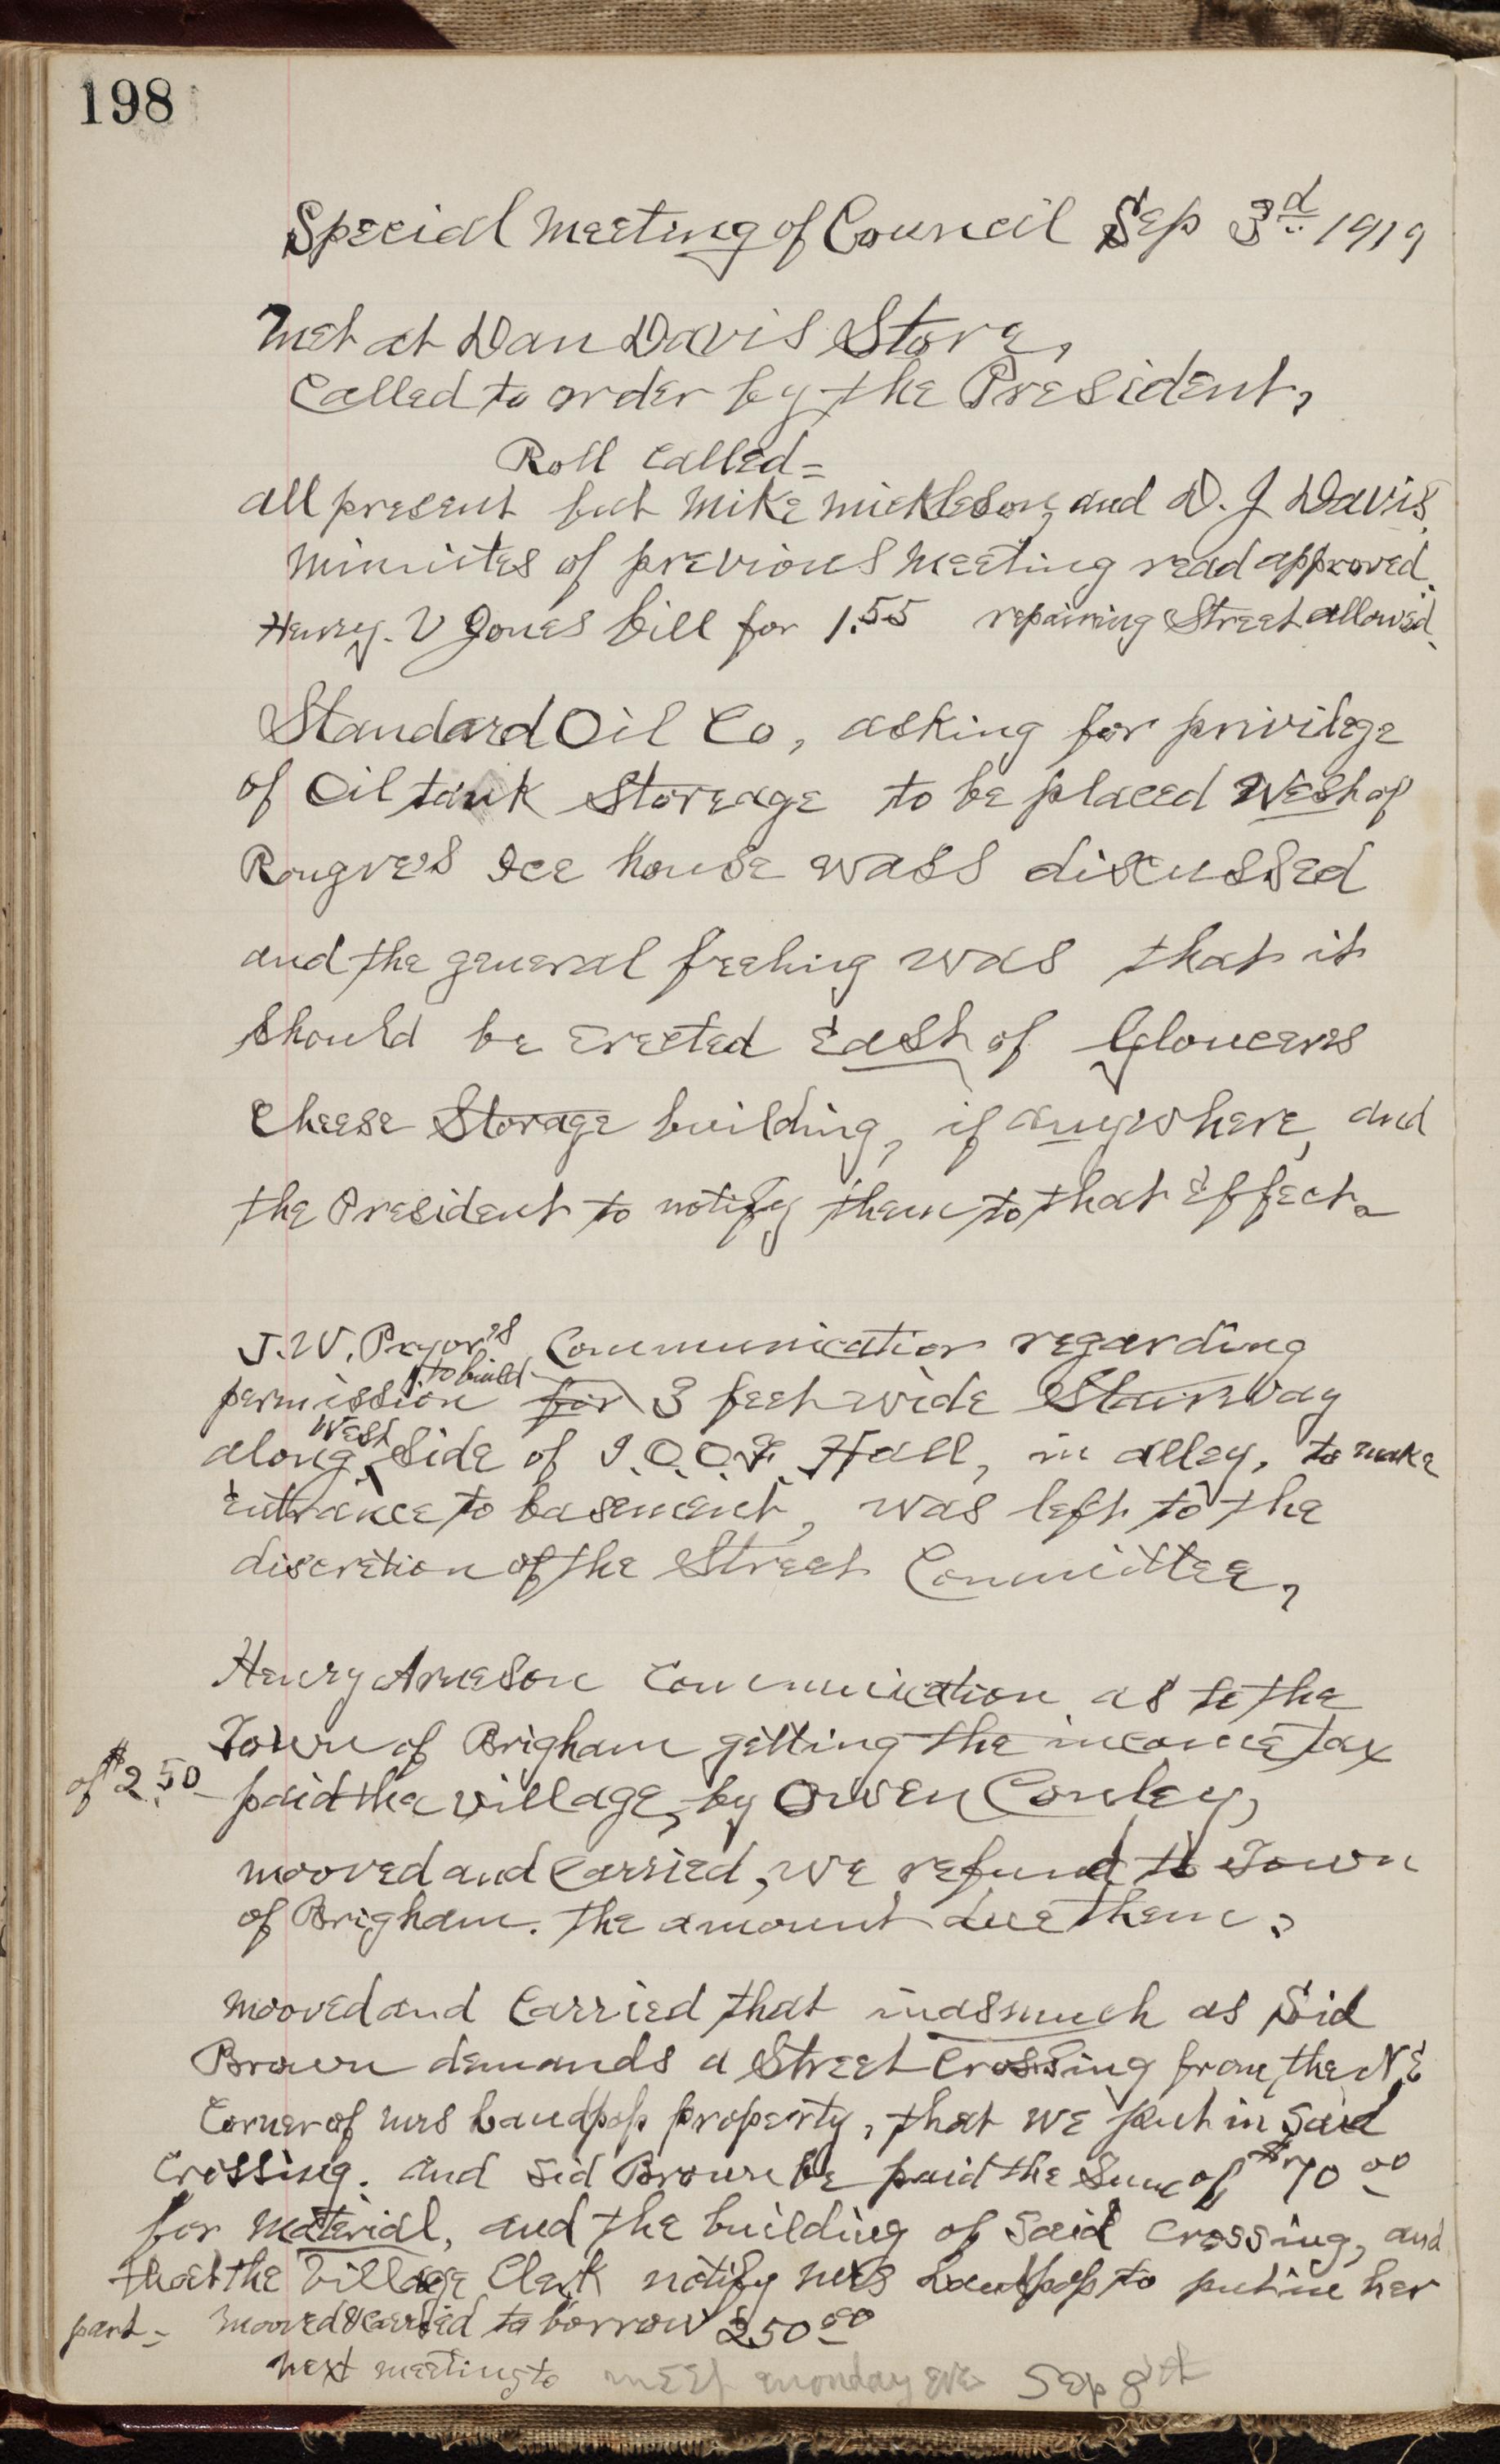 198
Special Meeting of Council Sep 3d 1919
Met at Dan Davis Store,
Called to order by the President,
Roll Called=
all present but Mike Mickleson, and D. J Davis.
Minuites of previous Meeting read approved.
Henry. V Jones bill for 1.55 repairing Street allowed.
Standard Oil Co, asking for privilege
of Oil tank Storeage to be placed West of
Ice house wass discussed
and the general feeling was that it
should be Erected East of
Cheese Storage building, if anywhere, and
the President to notify them to that Effect.
J. W. Pryor's Communication regarding
permission to build for 3 feet wide Stairway
along West Side of I.O.O.F. Hall, in alley, to make
Entrance to basement, was left to the
discretion of the Street Committee,
Henry Arneson Communication as to the
Town of Brigham getting the income Tax
of $2.50 paid the Village, by Owen Conley,
mooved and Carried, we refund to Town
of Brigham. the amount due them.
mooved and Carried that inasmuch as Sid
Brown demands a Street Crossing from the NE
Corner of Mrs property, that we put in said
Crossing. and Sid Brown be paid the Sum of $70.00
for Material, and the building of said Crossing, and
that the Village Clerk notify Mrs to put in her
part - Mooved & carried to borrow 250.00
next meeting to meet monday eve Sep 8th